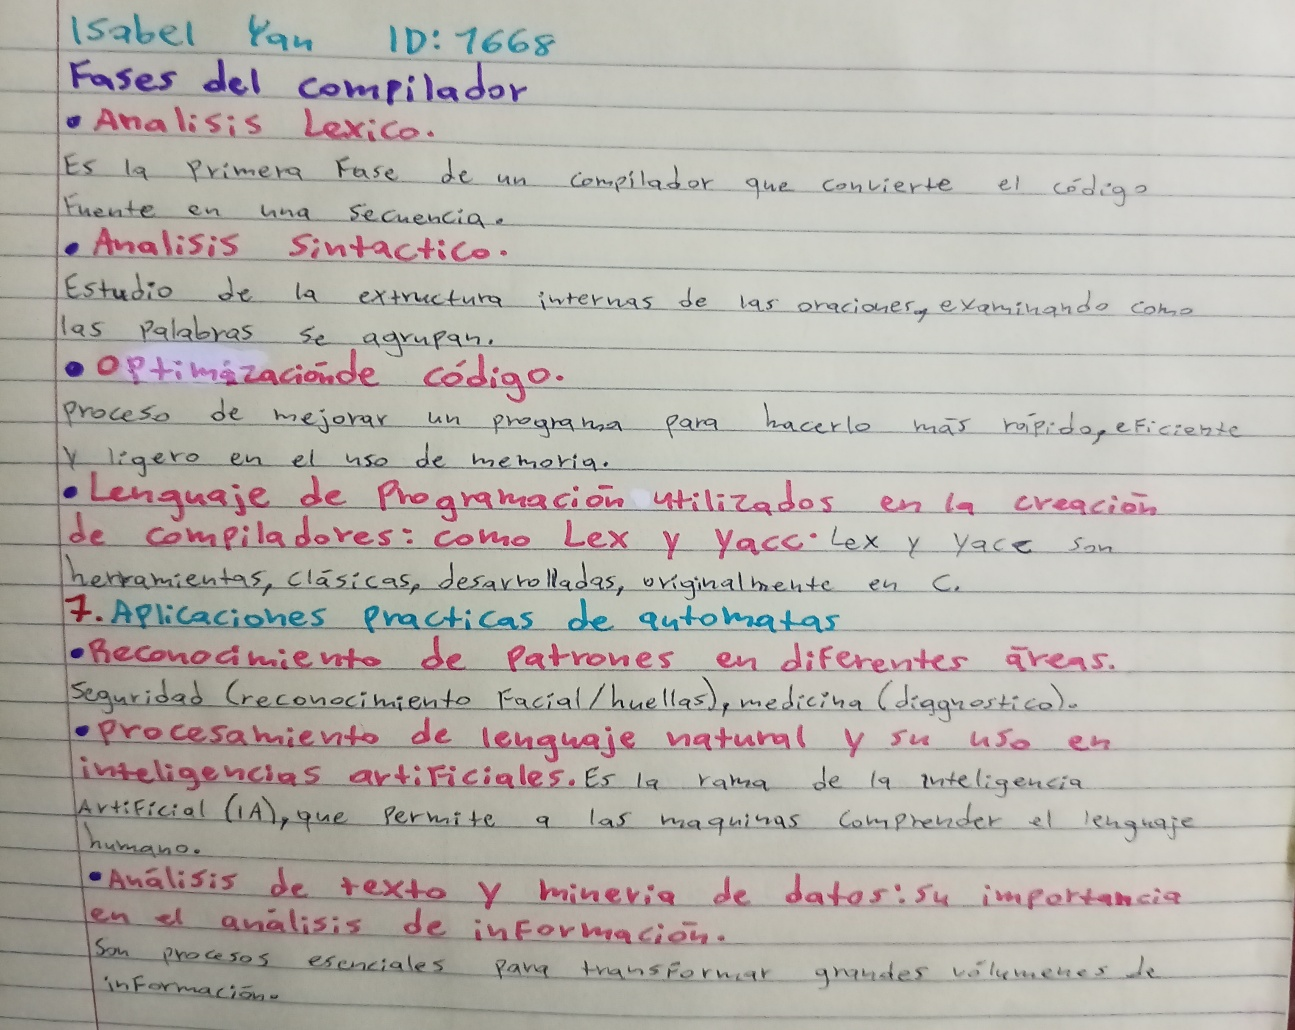 Isabel Yan ID: 7668
Fases del compilador
• Analisis Lexico.
Es la Primera Fase de un compilador que convierte el código
Fuente en una secuencia.
• Analisis Sintactico.
Estudio de la extructura internas de las oraciones, examinando como
las palabras se agrupan.
• Optimizaciónde código.
Proceso de mejorar un programa para hacerlo más rápido, eficiente
y ligero en el uso de memoria.
• Lenguaje de Programación utilizados en la creación
de compiladores: como Lex y Yacc. Lex y Yacc son
herramientas, clásicas, desarrolladas, originalmente en C.
7. Aplicaciones Practicas de automatas
• Reconocimiento de Patrones en diferentes áreas.
Seguridad (reconocimiento Facial/huellas), medicina (diagnostico).
• Procesamiento de lenguaje natural y su uso en
inteligencias artificiales. Es la rama de la inteligencia
Artificial (IA), que permite a las maquinas comprender el lenguaje
humano.
• Análisis de texto y mineria de datos: su importancia
en el análisis de información.
Son procesos esenciales para transformar grandes vólumenes de
información.